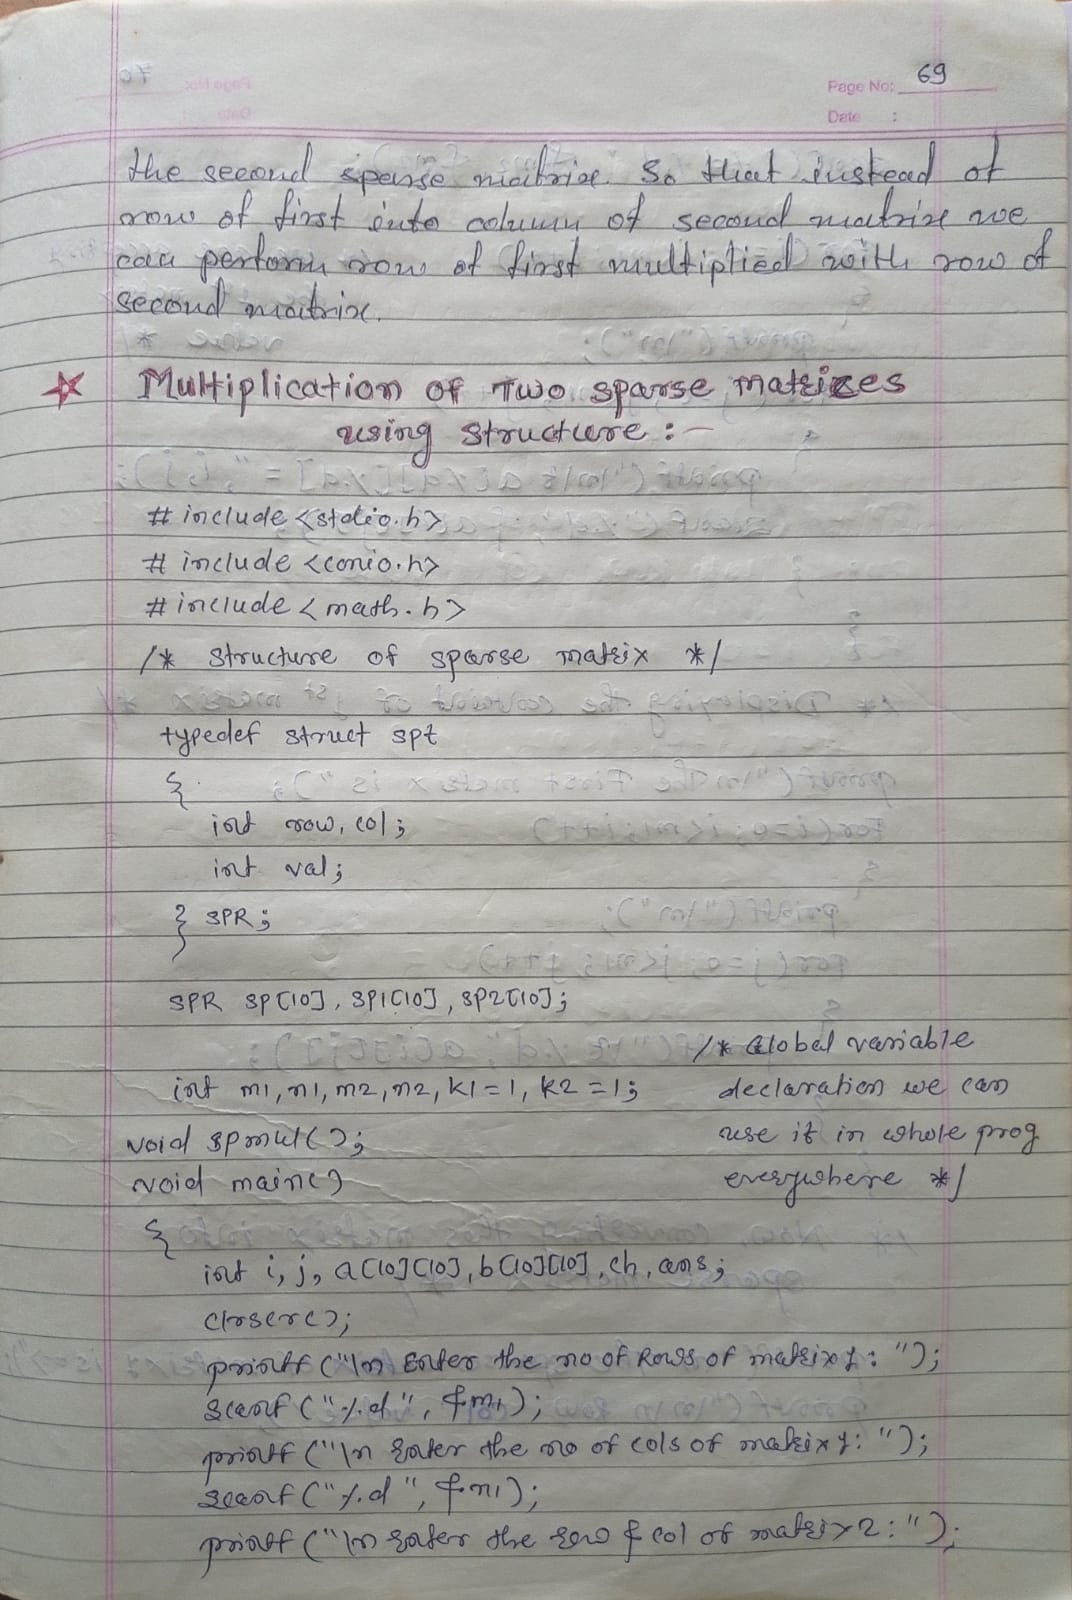 Page No: 69
Date :
the second sparse matrix. So that instead of
row of first into column of second matrix we
can perform row of first multiplied with row of
second matrix.
☆ Multiplication of Two sparse matrices
using structure :-
# include <stdio.h>
# include <conio.h>
# include <math.h>
/* structure of sparse matrix */
typedef struct spt
{
int row, col;
int val;
} SPR;
SPR SP[10], SP1[10], SP2[10];
/* Global variable
int m1, n1, m2, n2, k1 = 1, k2 = 1; declaration we can
void spmul(); use it in whole prog
void main() everywhere */
{
int i, j, a[10][10], b[10][10], ch, ans;
clrscr();
printf ("\n Enter the no of Rows of matrix 1: ");
scanf ("%d", &m1);
printf ("\n Enter the no of cols of matrix 1: ");
scanf ("%d", &n1);
printf ("\n Enter the row & col of matrix 2: ");